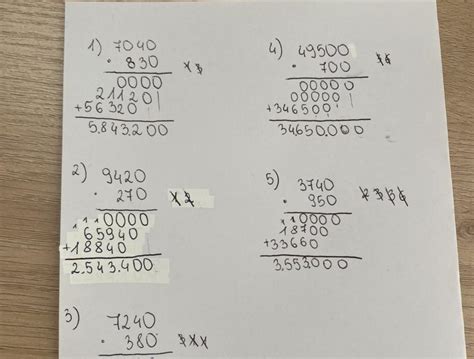 1) 7040
· 830
0000
21120
+56320
5.843.200
2) 9420
· 270
x 2
110000
65940
+18840
2.543.400
3) 7240
· 380
4) 49500
· 700
00000
00000
+346500
34650.000
5) 3740
· 950
10000
18700
+33660
3.553.000